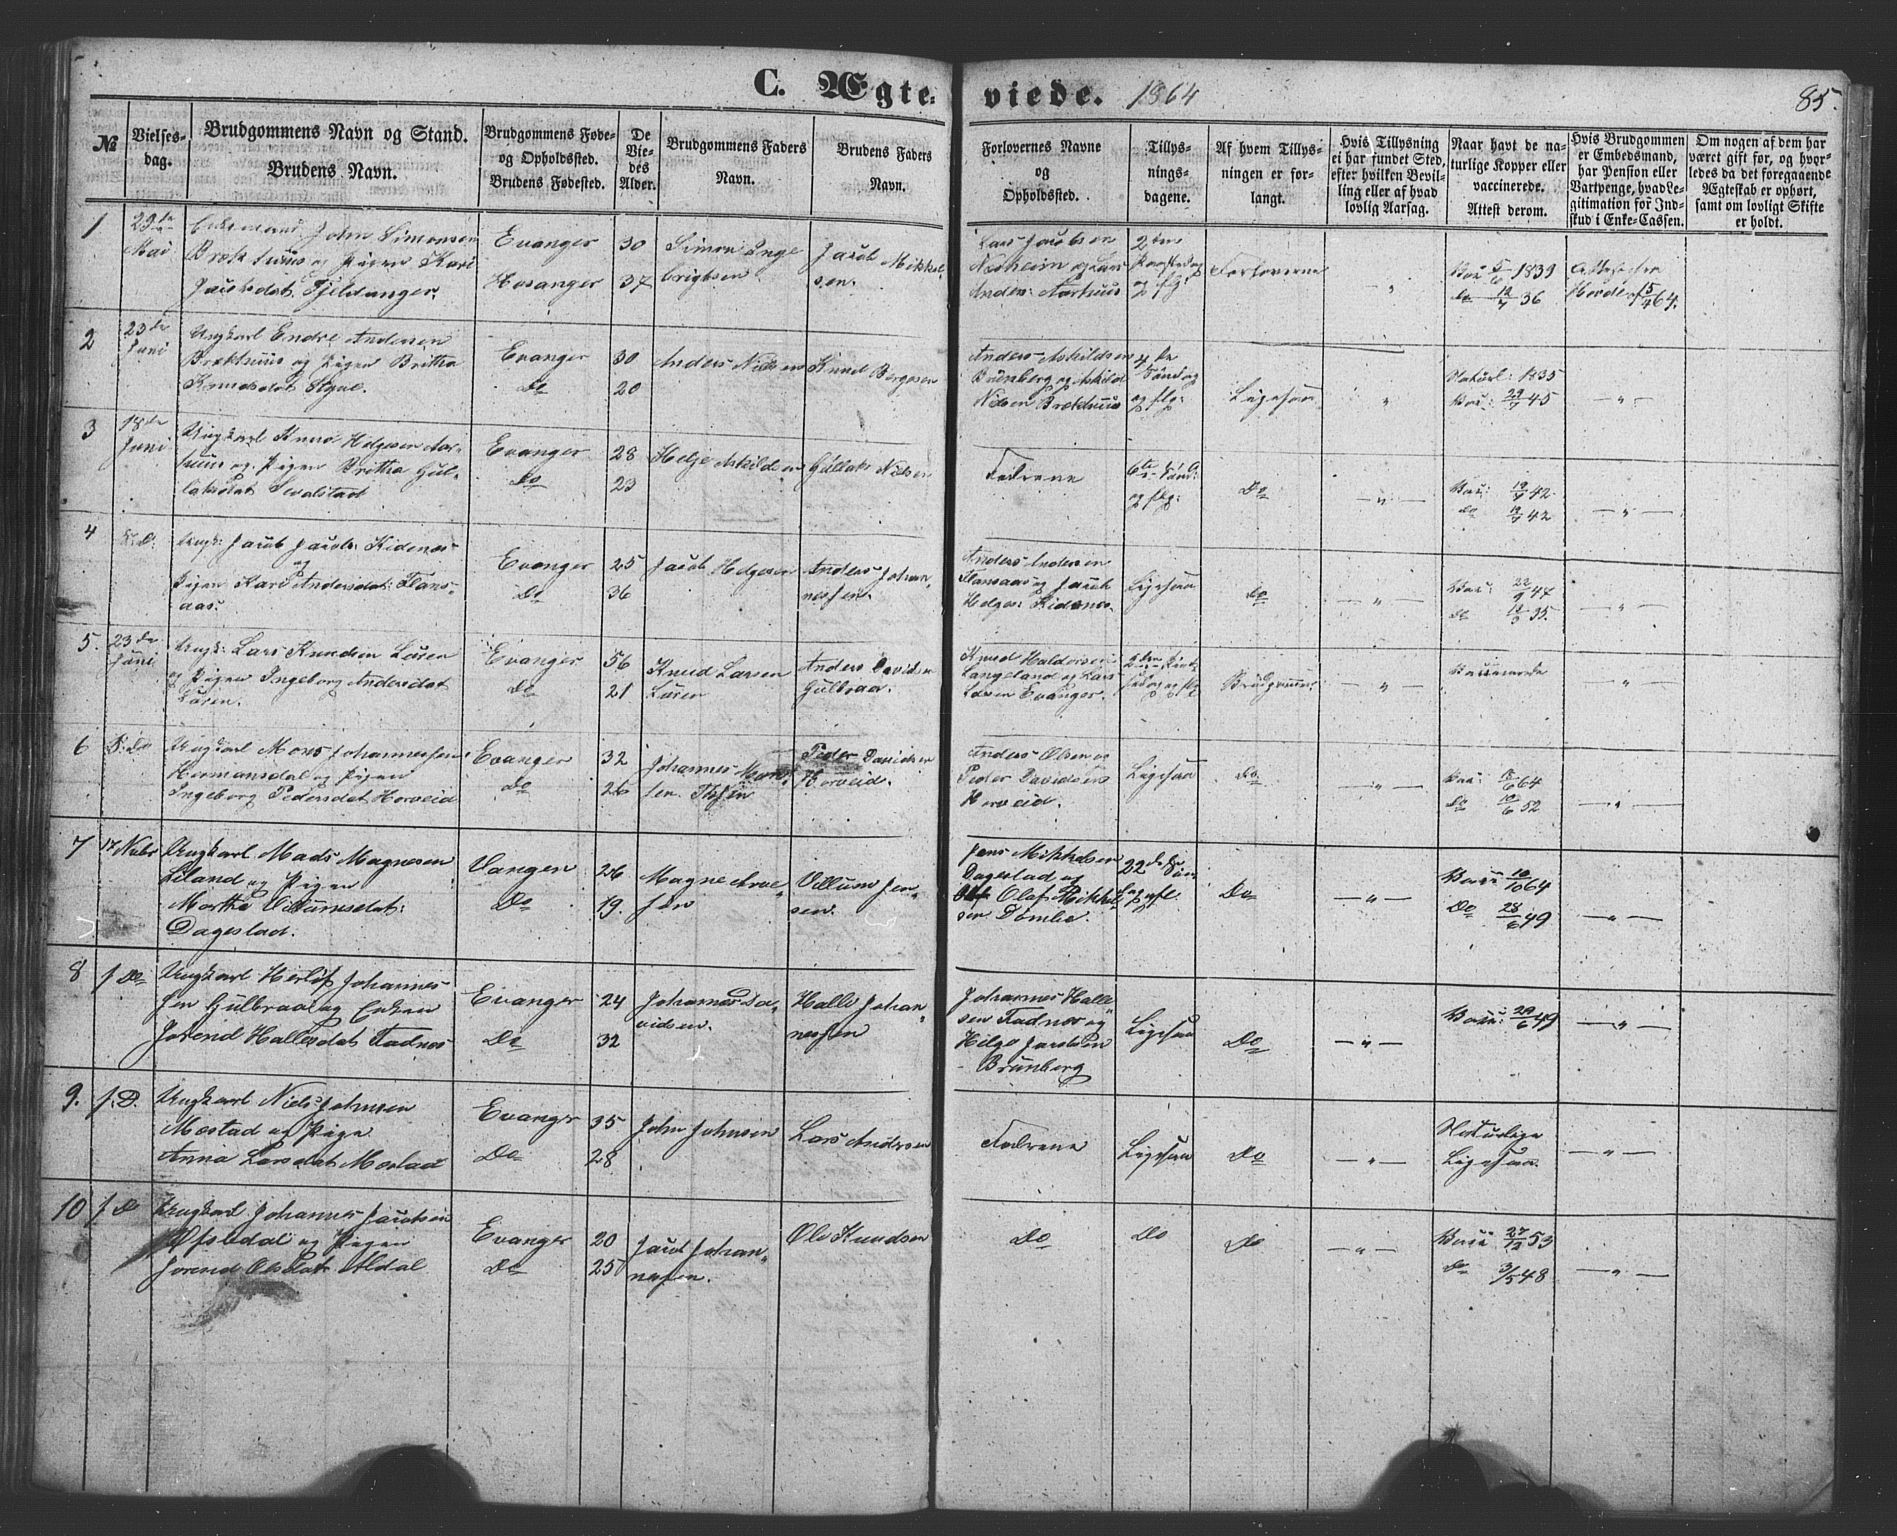 C. Ægteviede. 1864
85.
№
Vielsesdag.
Brudgommens Navn og Stand.
Brudens Navn.
Brudgommens Føde-
og Opholdssted.
Brudens Fødested.
De
Vie-
des
Alder.
Brudgommens Faders
Navn.
Brudens Faders
Navn.
Forlovernes Navne
og
Opholdssted.
Tillys-
nings-
dagene.
Af hvem Tillys-
ningen er for-
langt.
Hvis Tillysning
ei har fundet Sted,
efter hvilken Bevil-
ling eller af hvad
lovlig Aarsag.
Naar havt de na-
turlige Kopper eller
vaccinerede.
Attest derom.
Hvis Brudgommen
er Embedsmand,
har Pension eller
Vartpenge, hvad Le-
gitimation for Ind-
skud i Enke-Cassen.
Om nogen af dem har
været gift før, og hvor-
ledes da det foregaaende
Ægteskab er ophørt,
samt om lovligt Skifte
er holdt.
1
29de
Mai
Enkemand John Simonsen
Brækhuus og Pigen Kari
Jacobsdat Fjeldanger.
Evanger
Hosanger
30
37
Simon Inge
brigtsen
Jacob Mikkel
sen.
Lars Jacobsen
Næsheim og Lars
Anders: Aarhuus
2den
og flg:
Forloverne
"
1839
do 36
Attest fra
2
23de
Juni
Ungkarl Endre Andersen
Brækhuus og Pigen Britha
Knudsdat Styve.
Evanger
Do
30
20
Anders Nielsen
Knud Bergesen
Anders Askildsen
Brunberg og Askild
Nilsen Brækhuus
4de
Søndag
og flg:
Ligesaa
"
Naturl: 1835
Vac: 29/7 45
— " —
3
18de
Juni
Ungkarl Knud Helgesen Aar-
huus og Pigen Britha Gul-
laksdat Sevalstad
Evanger
Do
28
23
Helge Askildsen
Gullak Nilsen
Fædrene
6te Sønd:
og flg:
Do
— " —
Vac: 19/7 42
do 19/7 42
— " —
4
S. D.
Ungk: Jacob Jacobs: Kidenæs
og
Pigen Kari Andersdat: Flans-
aas.
Evanger
Do
25
36
Jacob Helgesen
Anders Johan-
nessen.
Anders Andersen
Flansaas og Jacob
Helges: Kidenæs.
Ligesaa
Do
— " —
Vac: 22/9 47
Do 35.
— " —
5.
23de
Juni
Ungk: Lars Knudsen Løren
og Pigen Ingeborg Andersdat
Løren.
Evanger
Do
56
21
Knud Larsen
Løren
Anders Davidsen
Gulbraa.
Knud Haldorsen
Langeland og Lars
Larsen Evanger.
2den
Brudgommen.
— " —
Vaccinerede
— " —
6
S: Do
Ungkarl Mons Johannessen
Hermansdal og Pigen
Ingeborg Pedersdat Horveid
Evanger
Do
32
26
Johannes Mons
sen
Peder Davidsen
Horveid.
Anders Olsen og
Peder Davidsen
Horveid.
Ligesaa
Do
— " —
Vac: 64
Do 10/6 52
— " —
7
17 Novbr
Ungkarl Mads Magnesen
Liland og Pigen
Martha Villumsdat:
Dagestad.
Vangen
Do
26
19.
Magne Arne
sen
Villum Jen-
sen.
Jens Mikkelsen
Dagestad og
Olaf Mikkel-
sen Tombe
22de Søn
dag og fl.
Do
— " —
Vacc 10/10 64
Do 28/6 49
— " —
8
f Do
Ungkarl Herlof Johannes-
sen Gulbraa og Enken
Jorend Hallesdat Fadnes
Evanger
Do
24
32
Johannes Da-
vidsen.
Halle Johan-
nessen
Johannes Halle
sen Fadnes og
Helge Jacobsen
Brunberg
Ligesaa
Do
— " —
Vacc: 29/6 49
— " —
9.
f. D.
Ungkarl Niels Johnsen
Mæstad og Pige
Anna Larsdat Mæstad
Evanger
Do
35
28
John Johnsen
Lars Andersen
Fædrene
Ligesaa
Do
— " —
Naturlige
Ligesaa.
— " —
10
f D
Ungkarl Johannes Jacobsen
Øfsedal og Pigen
Jorend Olsdat: Aldal
Evanger
Do
20
25
Jacob Johan-
nessen.
Ole Knudsen
Do
Do
Do
— " —
Vacc 27/12 53
Do 3/5 48
— " —